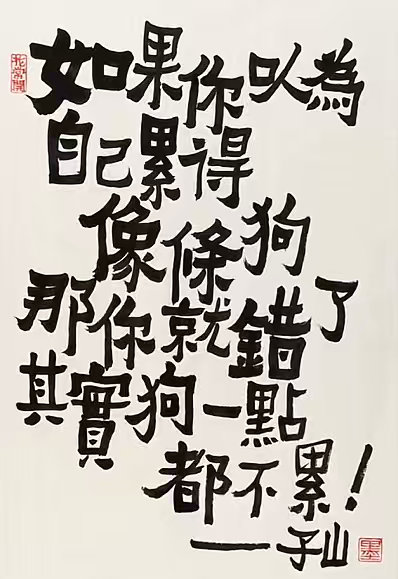 如果你以為
自己累得
像條狗
那你就錯了
其實狗一點
都不累！
一子山